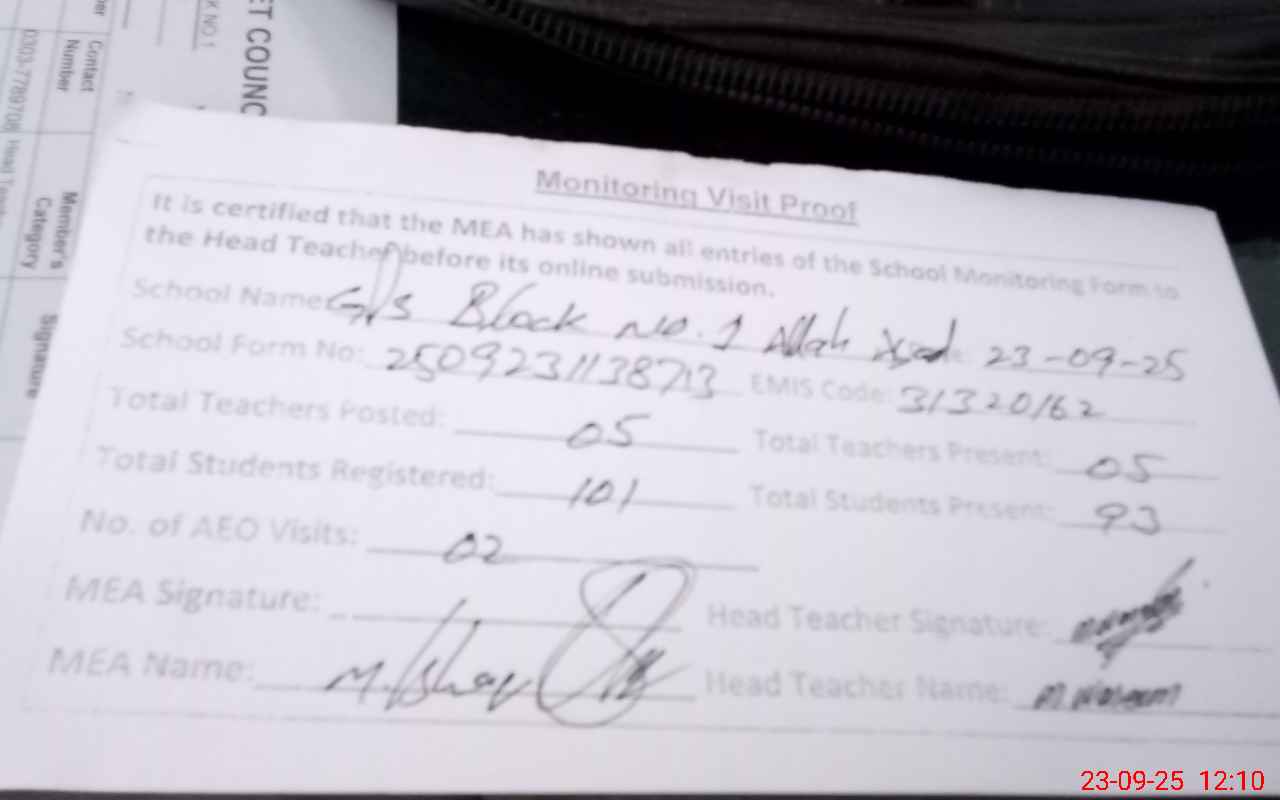 ET COUNC
K NO.1
Contact
Number
Member's
Category
Signature
0303-7789708 Head
Monitoring Visit Proof
It is certified that the MEA has shown all entries of the School Monitoring Form to
the Head Teacher before its online submission.
School Name: G/s Block No. 1 Allah 23-09-25
School Form No: EMIS Code: 31320162
Total Teachers Posted: 05 Total Teachers Present: 05
Total Students Registered: 101 Total Students Present: 93
No. of AEO Visits: 02
MEA Signature: Head Teacher Signature:
MEA Name: M. Head Teacher Name: M. Waseem
23-09-25 12:10